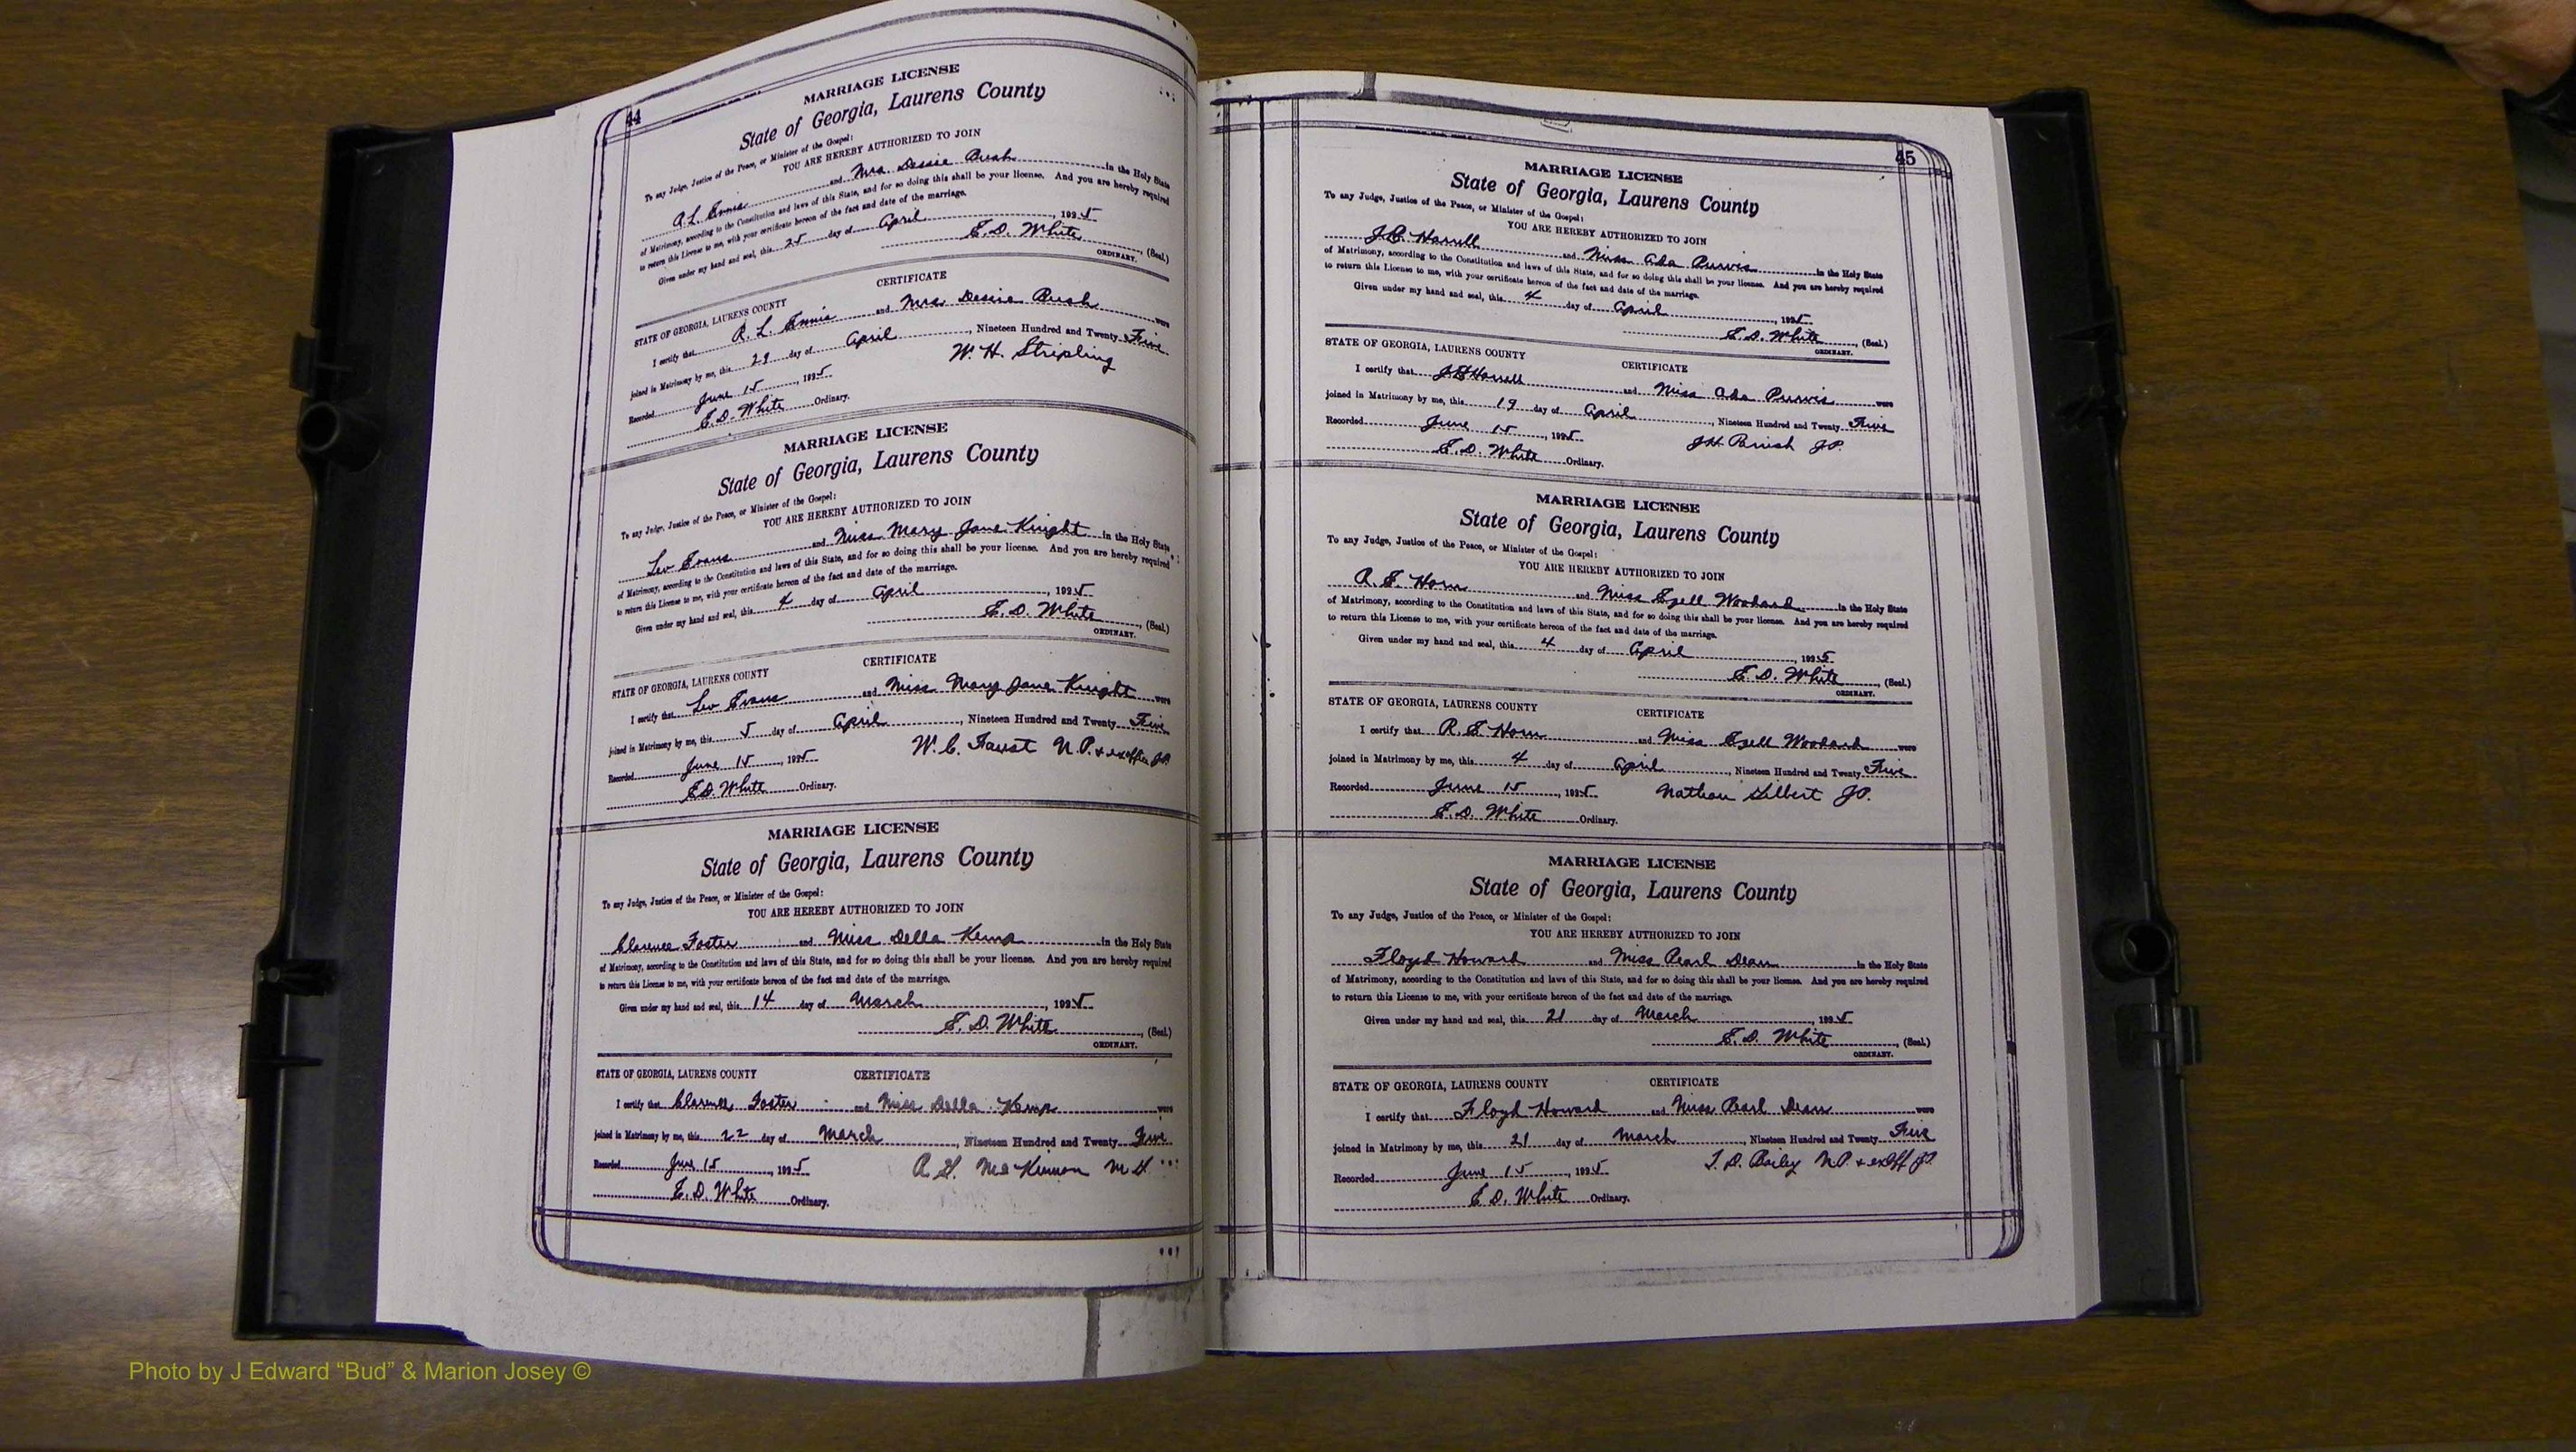 44
MARRIAGE LICENSE
State of Georgia, Laurens County
To any Judge, Justice of the Peace, or Minister of the Gospel:
YOU ARE HEREBY AUTHORIZED TO JOIN
and Mrs. Dessie Bush in the Holy State
of Matrimony, according to the Constitution and laws of this State, and for so doing this shall be your license. And you are hereby required
to return this License to me, with your certificate hereon of the fact and date of the marriage.
Given under my hand and seal, this 25 day of April, 1925
E. D. White, (Seal.)
ORDINARY.
CERTIFICATE
STATE OF GEORGIA, LAURENS COUNTY
I certify that R. L. Ennis and Mrs Dessie Bush were
joined in Matrimony by me, this 29 day of April, Nineteen Hundred and Twenty Five
Recorded June 15, 1925 W. H. Stripling
E. D. White Ordinary.
MARRIAGE LICENSE
State of Georgia, Laurens County
To any Judge, Justice of the Peace, or Minister of the Gospel:
YOU ARE HEREBY AUTHORIZED TO JOIN
Leo Evans and Miss Mary Jane Knight in the Holy State
of Matrimony, according to the Constitution and laws of this State, and for so doing this shall be your license. And you are hereby required
to return this License to me, with your certificate hereon of the fact and date of the marriage.
Given under my hand and seal, this 4 day of April, 1925
E. D. White, (Seal.)
ORDINARY.
CERTIFICATE
STATE OF GEORGIA, LAURENS COUNTY
I certify that Leo Evans and Miss Mary Jane Knight were
joined in Matrimony by me, this 5 day of April, Nineteen Hundred and Twenty Five
Recorded June 15, 1925 W. C. Faust N.P. & exoffico JP
E. D. White Ordinary.
MARRIAGE LICENSE
State of Georgia, Laurens County
To any Judge, Justice of the Peace, or Minister of the Gospel:
YOU ARE HEREBY AUTHORIZED TO JOIN
Clarence Foster and Miss Della Kemp in the Holy State
of Matrimony, according to the Constitution and laws of this State, and for so doing this shall be your license. And you are hereby required
to return this License to me, with your certificate hereon of the fact and date of the marriage.
Given under my hand and seal, this 14 day of March, 1925
E. D. White, (Seal.)
ORDINARY.
STATE OF GEORGIA, LAURENS COUNTY CERTIFICATE
I certify that Clarence Foster and Miss Della Kemp were
joined in Matrimony by me, this 22 day of March, Nineteen Hundred and Twenty Five
Recorded June 15, 1925 McKinnon M G
E. D. White Ordinary.
45
MARRIAGE LICENSE
State of Georgia, Laurens County
To any Judge, Justice of the Peace, or Minister of the Gospel:
YOU ARE HEREBY AUTHORIZED TO JOIN
Harrell and Miss Ada Purvis in the Holy State
of Matrimony, according to the Constitution and laws of this State, and for so doing this shall be your license. And you are hereby required
to return this License to me, with your certificate hereon of the fact and date of the marriage.
Given under my hand and seal, this 4 day of April, 1925
E. D. White, (Seal.)
ORDINARY.
STATE OF GEORGIA, LAURENS COUNTY CERTIFICATE
I certify that Harrell and Miss Ada Purvis were
joined in Matrimony by me, this 19 day of April, Nineteen Hundred and Twenty Five
Recorded June 15, 1925 J.H. Parish J.P.
E. D. White Ordinary.
MARRIAGE LICENSE
State of Georgia, Laurens County
To any Judge, Justice of the Peace, or Minister of the Gospel:
YOU ARE HEREBY AUTHORIZED TO JOIN
R. E. Horn and Miss Ezell Woodard in the Holy State
of Matrimony, according to the Constitution and laws of this State, and for so doing this shall be your license. And you are hereby required
to return this License to me, with your certificate hereon of the fact and date of the marriage.
Given under my hand and seal, this 4 day of April, 1925
E. D. White, (Seal.)
ORDINARY.
STATE OF GEORGIA, LAURENS COUNTY CERTIFICATE
I certify that R. E Horn and Miss Ezell Woodard were
joined in Matrimony by me, this 4 day of April, Nineteen Hundred and Twenty Five
Recorded June 15, 1925 Nathan Gilbert JP.
E. D. White Ordinary.
MARRIAGE LICENSE
State of Georgia, Laurens County
To any Judge, Justice of the Peace, or Minister of the Gospel:
YOU ARE HEREBY AUTHORIZED TO JOIN
Floyd Howard and Miss Pearl Dean in the Holy State
of Matrimony, according to the Constitution and laws of this State, and for so doing this shall be your license. And you are hereby required
to return this License to me, with your certificate hereon of the fact and date of the marriage.
Given under my hand and seal, this 21 day of March, 1925
E. D. White, (Seal.)
ORDINARY.
STATE OF GEORGIA, LAURENS COUNTY CERTIFICATE
I certify that Floyd Howard and Miss Pearl Dean were
joined in Matrimony by me, this 21 day of March, Nineteen Hundred and Twenty Five
Recorded June 15, 1925 Bailey N.P. & exoff JP
E D. White Ordinary.
Photo by J Edward “Bud” & Marion Josey ©